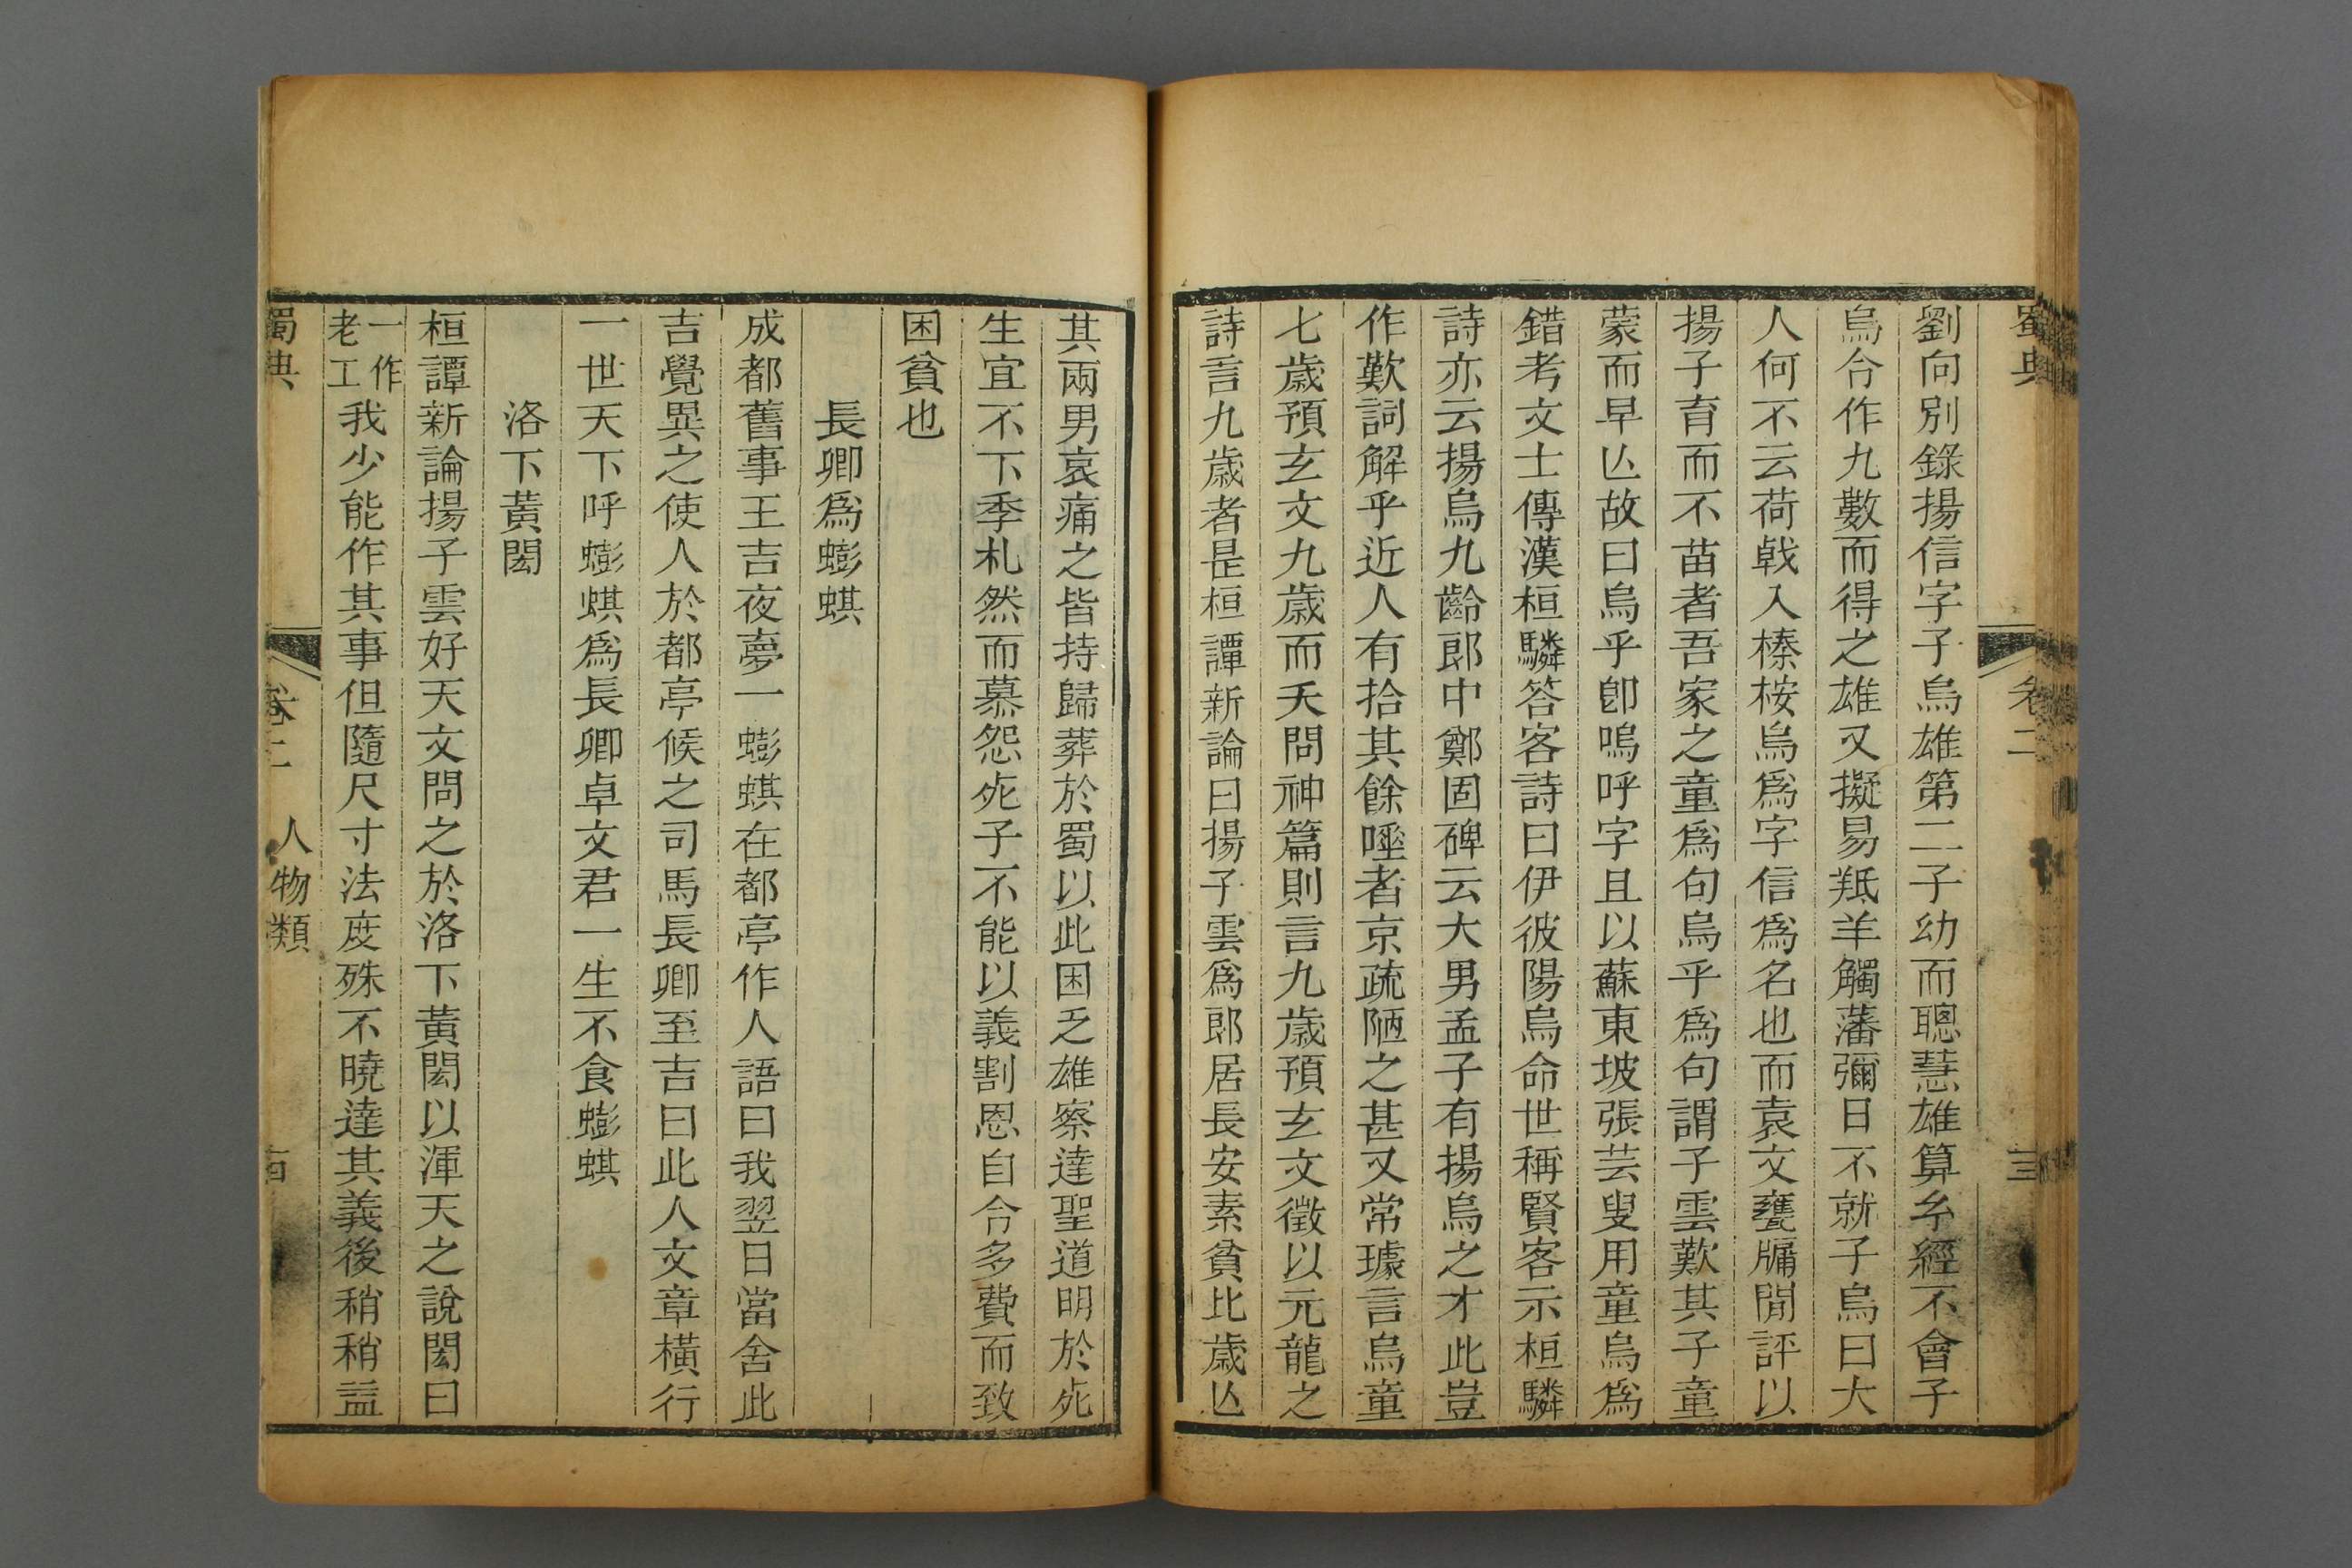 蜀典
卷二
劉向別錄揚信字子烏雄第二子幼而聰慧雄算玄經不會子
烏令作九數而得之雄又擬易羝羊觸藩彌日不就子烏曰大
人何不云荷戟入榛桉烏爲字信爲名也而袁文甕牖閒評以
揚子育而不苗者吾家之童爲句烏乎爲句謂子雲歎其子童
蒙而早亾故曰烏乎卽嗚呼字且以蘇東坡張芸叟用童烏爲
錯考文士傳漢桓驎答客詩曰伊彼陽烏命世稱賢客示桓驎
詩亦云揚烏九齡郎中鄭固碑云大男孟子有揚烏之才此豈
作歎詞解乎近人有拾其餘唾者京疏陋之甚又常璩言烏童
七歲預玄文九歲而夭問神篇則言九歲預玄文徵以元龍之
詩言九歲者是桓譚新論曰揚子雲爲郎居長安素貧比歲亾
其兩男哀痛之皆持歸葬於蜀以此困乏雄察達聖道明於死
生宜不下季札然而慕怨死子不能以義割恩自令多費而致
困貧也
長卿爲蟛蜞
成都舊事王吉夜夢一蟛蜞在都亭作人語曰我翌日當舍此
吉覺異之使人於都亭候之司馬長卿至吉曰此人文章橫行
一世天下呼蟛蜞爲長卿卓文君一生不食蟛蜞
洛下黃閎
桓譚新論揚子雲好天文問之於洛下黃閎以渾天之說閎曰
一作老工我少能作其事但隨尺寸法度殊不曉達其義後稍稍益
蜀典
卷二
人物類